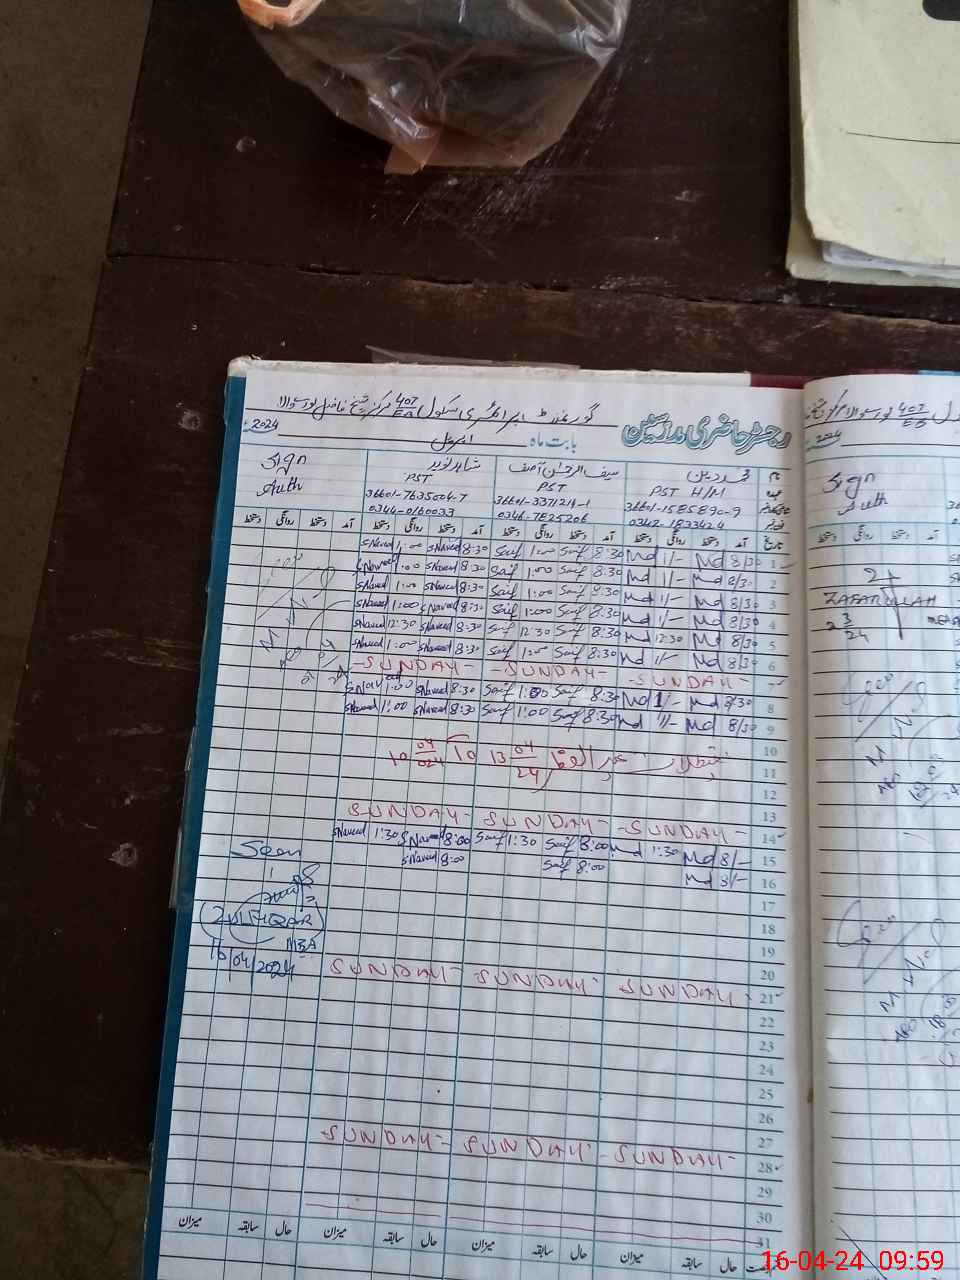 گورنمنٹ پرائمری سکول 407/EB مرکز شیخ فاضل بورے والا
رجسٹر حاضری مدرسین بابت ماہ اپریل 2024
نام محمد دین سیف الرحمٰن آصف شاہد نوید Sign
عہدہ PST H/M PST PST Auth
36601-7635004-7
0346-0160033
تاریخ آمد دستخط روانگی دستخط آمد دستخط روانگی دستخط آمد دستخط روانگی دستخط آمد دستخط روانگی دستخط
1 8/30 Md 1/- Md 8:30 Saif 1:00 Saif 8:30 SNaveed 1:00 SNaveed
2 8/30 Md 1/- Md 8:30 Saif 1:00 Saif 8:30 SNaveed 1:00 SNaveed
3 8/30 Md 1/- Md 8:30 Saif 1:00 Saif 8:30 SNaveed 1:00 SNaveed
4 8/30 Md 1/- Md 8:30 Saif 1:00 Saif 8:30 SNaveed 1:00 SNaveed
5 8/30 Md 12:30 Md 8:30 Saif 12:30 Saif 8:30 SNaveed 12:30 SNaveed
6 8/30 Md 1/- Md 8:30 Saif 1:00 Saif 8:30 SNaveed 1:00 SNaveed
7 -SUNDAY- -SUNDAY- -SUNDAY-
8 8/30 Md 1/- Md 8:30 Saif 1:00 Saif 8:30 SNaveed 1:00 SNaveed
9 8/30 Md 1/- Md 8:30 Saif 1:00 Saif 8:30 SNaveed 1:00 SNaveed
10
11 تعطیلات عید الفطر 10 04/024 تا 13 04/24
12
13
14 -SUNDAY- SUNDAY- SUNDAY-
15 8/- Md 1:30 Md 8:00 Saif 1:30 Saif 8:00 SNaveed 1:30 SNaveed
16 8/- Md 8:00 Saif 8:00 SNaveed
17
18
19
20
21 SUNDAY SUNDAY SUNDAY
22
23
24
25
26
27
28 SUNDAY- SUNDAY SUNDAY-
29
30
31
Seen
ZULFIQAR
MEA
16/04/2024
حال سابقہ میزان حال سابقہ میزان حال سابقہ میزان حال سابقہ میزان
407/EB
2024
Sign
Auth
دستخط روانگی دستخط
ZAFARULLAH
16-04-24 09:59